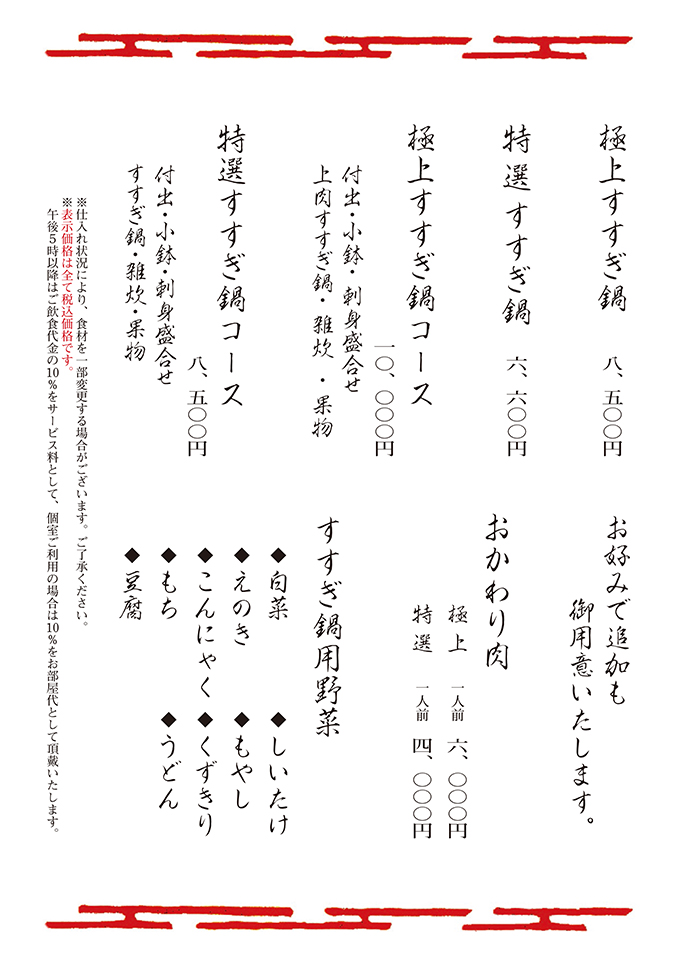 極上すすぎ鍋 八、五〇〇円
特選すすぎ鍋 六、六〇〇円
極上すすぎ鍋コース
一〇、〇〇〇円
付出・小鉢・刺身盛合せ
上肉すすぎ鍋・雑炊・果物
特選すすぎ鍋コース
八、五〇〇円
付出・小鉢・刺身盛合せ
すすぎ鍋・雑炊・果物
お好みで追加も
御用意いたします。
おかわり肉
極上 一人前 六、〇〇〇円
特選 一人前 四、〇〇〇円
すすぎ鍋用野菜
◆白菜 ◆しいたけ
◆えのき ◆もやし
◆こんにゃく ◆くずきり
◆もち ◆うどん
◆豆腐
※仕入れ状況により、食材を一部変更する場合がございます。ご了承ください。
※表示価格は全て税込価格です。
午後5時以降はご飲食代金の10%をサービス料として、個室ご利用の場合は10%をお部屋代として頂戴いたします。